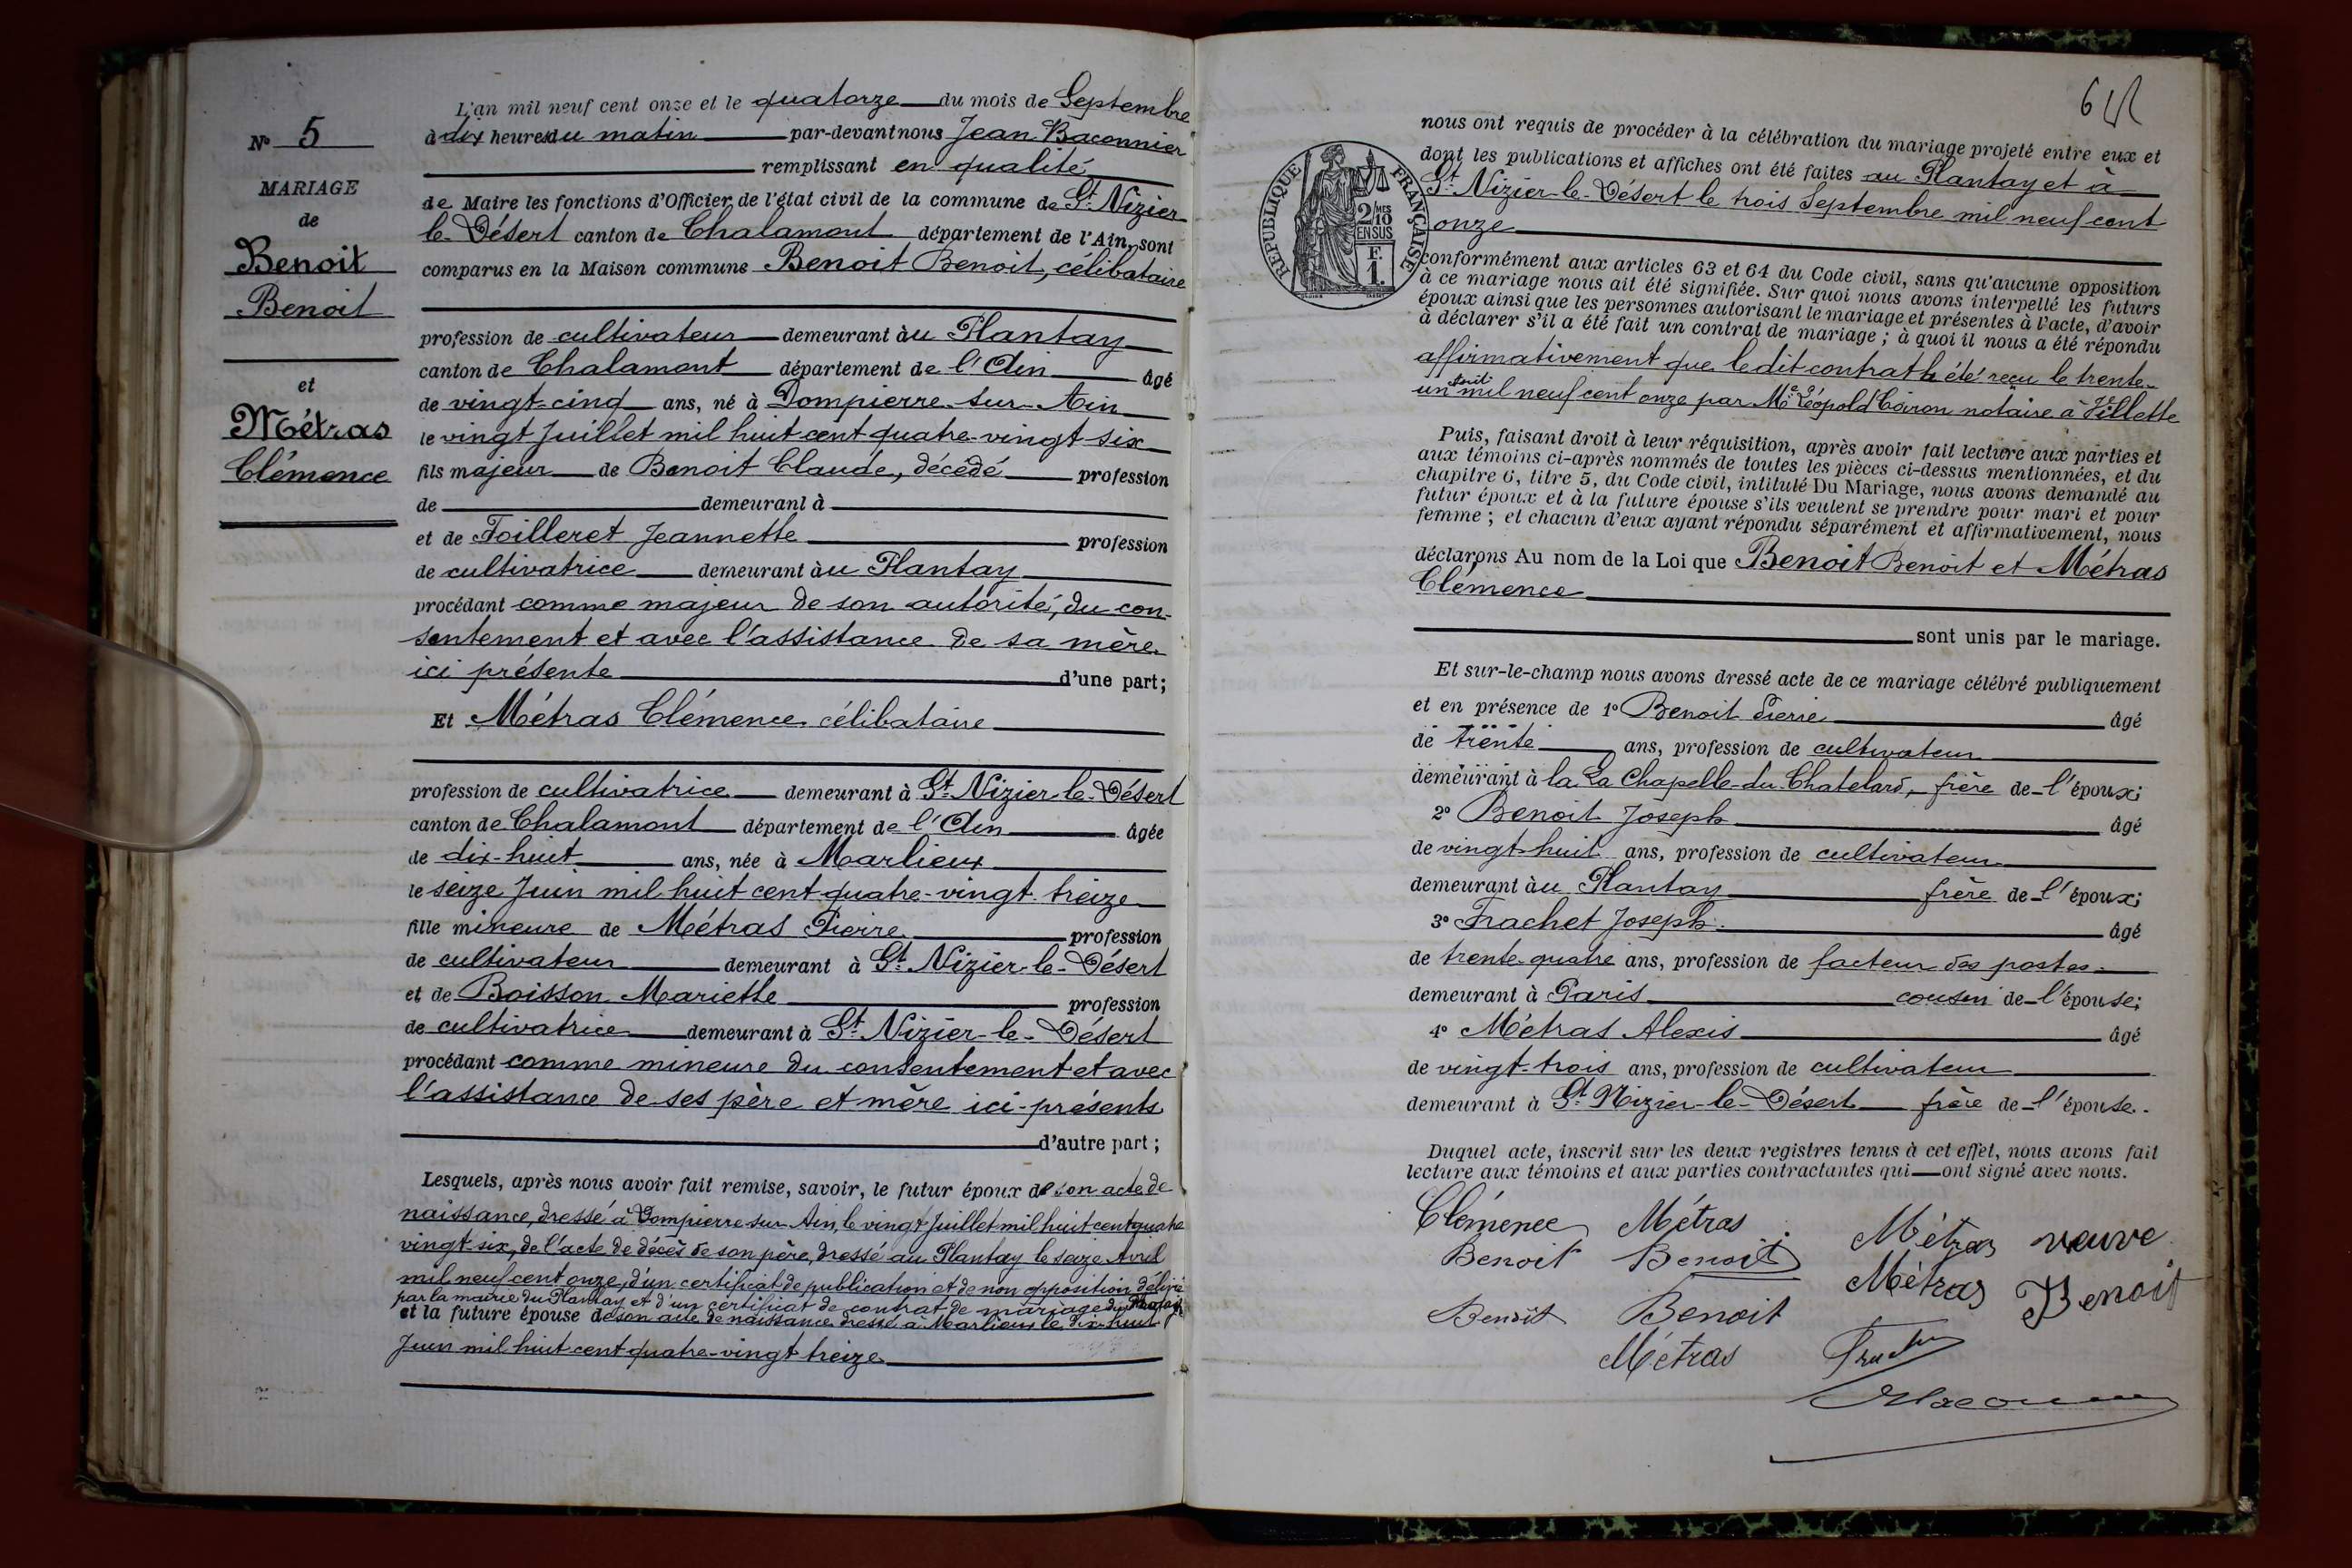 N° 5
MARIAGE
de
Benoit
Benoit
et
Métras
Clémence
L'an mil neuf cent onze et le quatorze du mois de Septembre
à dix heures du matin par-devant nous Jean Baconnier
remplissant en qualité
de Maire les fonctions d'Officier de l'état civil de la commune de St Nizier
le-Désert canton de Chalamont département de l'Ain, sont
comparus en la Maison commune Benoit Benoit, célibataire
profession de cultivateur demeurant àu Plantay
canton de Chalamont département de l'Ain âgé
de vingt-cinq ans, né à Dompierre-sur-Ain
le vingt Juillet mil huit cent quatre-vingt-six
fils majeur de Benoit Claude, décédé profession
de demeurant à
et de Foilleret Jeannette profession
de cultivatrice demeurant àu Plantay
procédant comme majeur de son autorité, du con-
sentement et avec l'assistance de sa mère
ici présente d'une part;
Et Métras Clémence célibataire
profession de cultivatrice demeurant à St Nizier-le-Désert
canton de Chalamont département de l'Ain âgée
de dix-huit ans, née à Marlieux
le seize Juin mil huit cent quatre-vingt-treize
fille mineure de Métras Pierre profession
de cultivateur demeurant à St Nizier-le-Désert
et de Boisson Mariette profession
de cultivatrice demeurant à St Nizier-le-Désert
procédant comme mineure du consentement et avec
l'assistance de ses père et mère ici-présents
d'autre part;
Lesquels, après nous avoir fait remise, savoir, le futur époux de son acte de
naissance, dressé à Dompierre sur Ain, le vingt Juillet mil huit cent quatre
vingt-six, de l'acte de décès de son père, dressé au Plantay le seize Avril
mil neuf cent onze, d'un certificat de publication et de non opposition délivré
par la mairie du Plantay et d'un certificat de contrat de mariage
et la future épouse de son acte de naissance dressé à Marlieux le dix-huit
Juin mil huit cent quatre-vingt treize
nous ont requis de procéder à la célébration du mariage projeté entre eux et
dont les publications et affiches ont été faites au Plantay et à
St Nizier-le-Désert le trois Septembre mil neuf cent
onze
RÉPUBLIQUE FRANÇAISE
2/10 MES
EN SUS
F.
1.
conformément aux articles 63 et 64 du Code civil, sans qu'aucune opposition
à ce mariage nous ait été signifiée. Sur quoi nous avons interpellé les futurs
époux ainsi que les personnes autorisant le mariage et présentes à l'acte, d'avoir
à déclarer s'il a été fait un contrat de mariage ; à quoi il nous a été répondu
affirmativement que le dit contrat a été reçu le trente-
un août mil neuf cent onze par Me Léopold notaire à Villette
Puis, faisant droit à leur réquisition, après avoir fait lecture aux parties et
aux témoins ci-après nommés de toutes les pièces ci-dessus mentionnées, et du
chapitre 6, titre 5, du Code civil, intitulé Du Mariage, nous avons demandé au
futur époux et à la future épouse s'ils veulent se prendre pour mari et pour
femme ; et chacun d'eux ayant répondu séparément et affirmativement, nous
déclarons Au nom de la Loi que Benoit Benoit et Métras
Clémence
sont unis par le mariage.
Et sur-le-champ nous avons dressé acte de ce mariage célébré publiquement
et en présence de 1° Benoit Pierre âgé
de trente ans, profession de cultivateur
demeurant à la La Chapelle-du-Chatelard, frère de l'époux;
2° Benoit Joseph âgé
de vingt-huit ans, profession de cultivateur
demeurant àu Plantay frère de l'époux;
3° Frachet Joseph âgé
de trente-quatre ans, profession de facteur des postes
demeurant à Paris cousin de l'épouse;
4° Métras Alexis âgé
de vingt-trois ans, profession de cultivateur
demeurant à St Nizier-le-Désert frère de l'épouse.
Duquel acte, inscrit sur les deux registres tenus à cet effet, nous avons fait
lecture aux témoins et aux parties contractantes qui ont signé avec nous.
Clémence Métras Métras veuve
Benoit Benoit Métras Benoit
Benoit Benoit
Métras